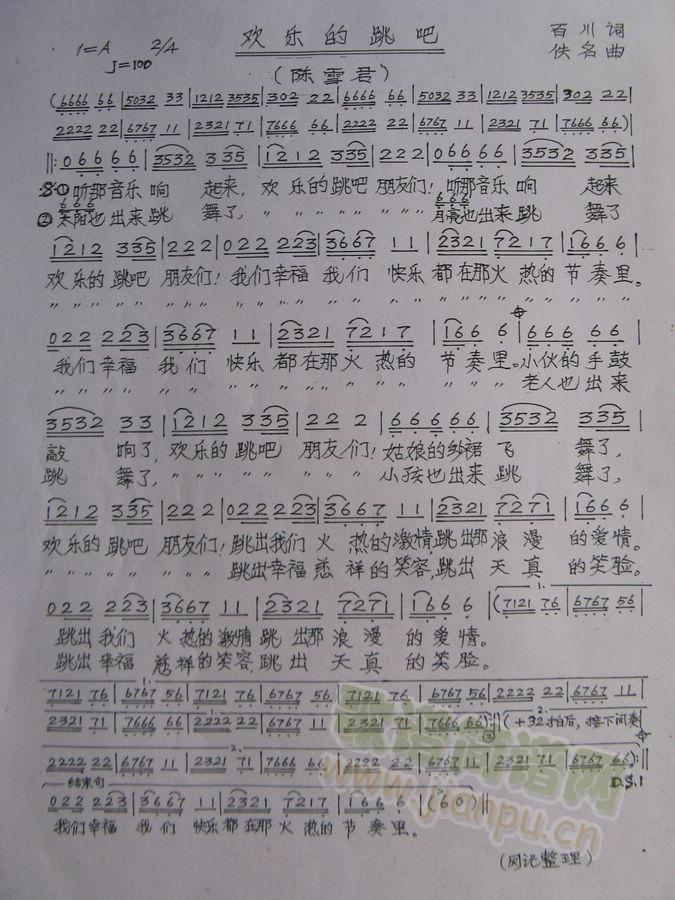 欢乐的跳吧
1=A 2/4
J=100
百川词
佚名曲
(陈雪君)
(6666 66|5032 33|1212 3535|3022 22|6666 66|5032 33|1212 3535|3022 22
2222 22|6767 11|2321 71|7666 66|2222 22|6767 11|2321 71|7666 66)
||:0666 66|3532 335|1212 335|222|0666 66|3532 335
①听那音乐响 起来,欢乐的跳吧朋友们!听那音乐响 起来
666 666
②也出来跳 舞了,〃〃〃〃〃〃〃〃月亮也出来跳 舞了
1212 335|222|022 223|3667 11|2321 7217|166 6|
欢乐的跳吧朋友们!我们幸福我们 快乐都在那火热的节奏里。
022 223|3667 11|2321 7217|166 6|666 66 66|
我们幸福 我们 快乐都在那火热的 节奏里。小伙的手鼓
〃〃〃〃 〃〃 〃〃〃〃〃〃〃〃 〃〃〃 老人也出来
3532 33|1212 335|22 2|66666|3532 335|
敲 响了,欢乐的跳吧 朋友们!姑娘的纱裙飞 舞了,
跳 舞了,〃〃〃〃〃 〃〃〃 小孩也出来跳 舞了,
1212 335|222|022 223|3667|2321 7271|166 6|
欢乐的跳吧朋友们!跳出我们火热的激情,跳出那浪漫的爱情。
〃〃〃〃〃〃〃〃 跳出幸福慈祥的笑容,跳出天真的笑脸。
022 223|3667 11|2321 7271|166 6|(7121 76|6767 56|
跳出我们 火热的激情跳出那浪漫的爱情。
跳出幸福 慈祥的笑容,跳出天真的笑脸。
7121 76|6767 56|7121 76|6767 56|7121 76|6767 56|2222 22|6767 11|
2321 71|7666 66|2222 22|6767 11|2321 71|7666 66):||(+32拍后,接下间奏
2222 22|6767 11|2321 71|7666 66|2222 22|6767 11|2321 71|6767 66):||
结束句
D.S.1
022 223|3667 11|2321 7217|166 6|(60)||
我们幸福 我们 快乐都在那火热的节奏里。
歌谱简谱网
www.jianpu.cn
(网记整理)